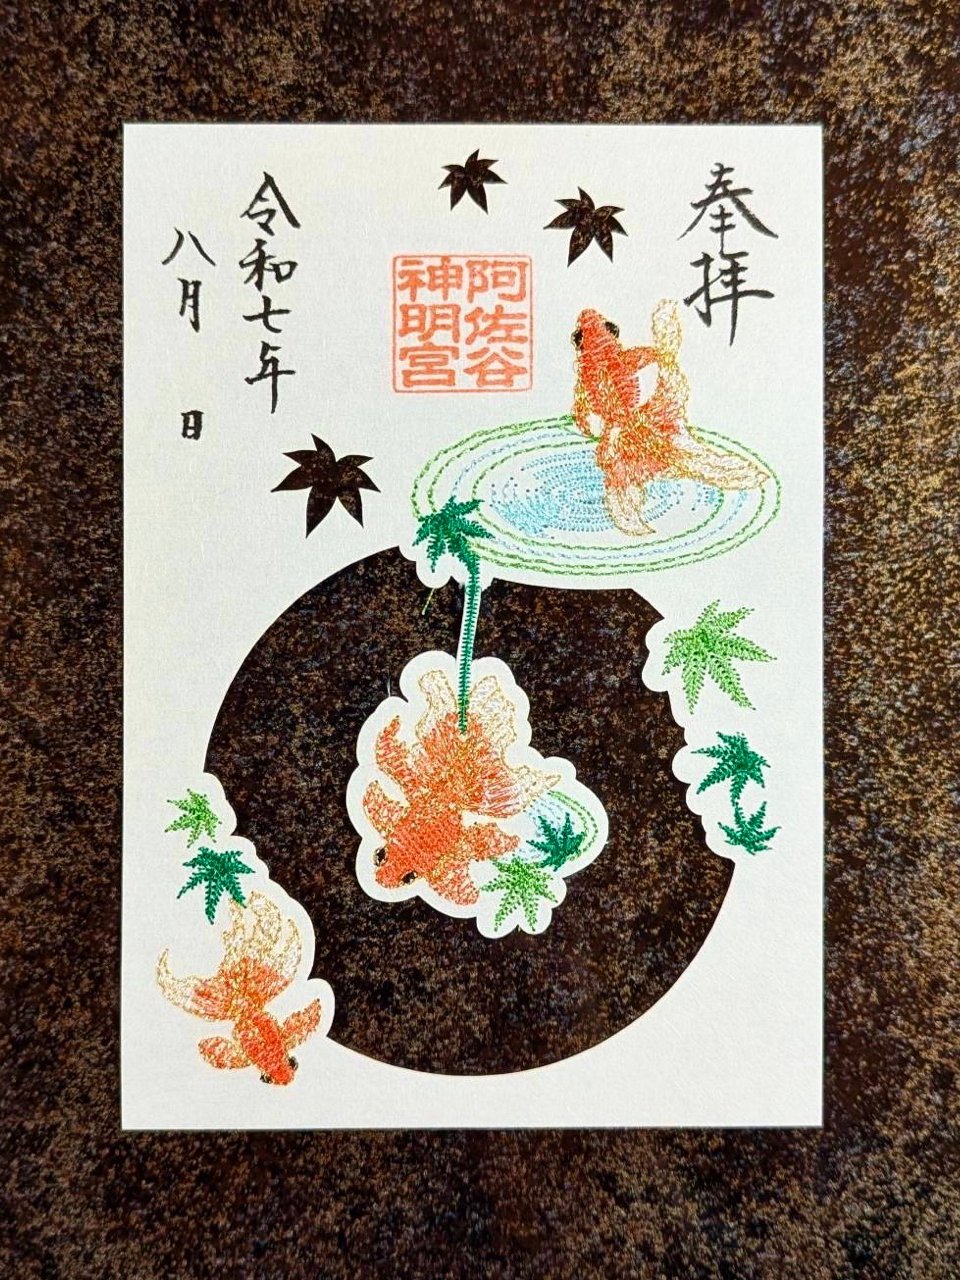 奉拝
阿佐谷
神明宮
令和七年
八月 日